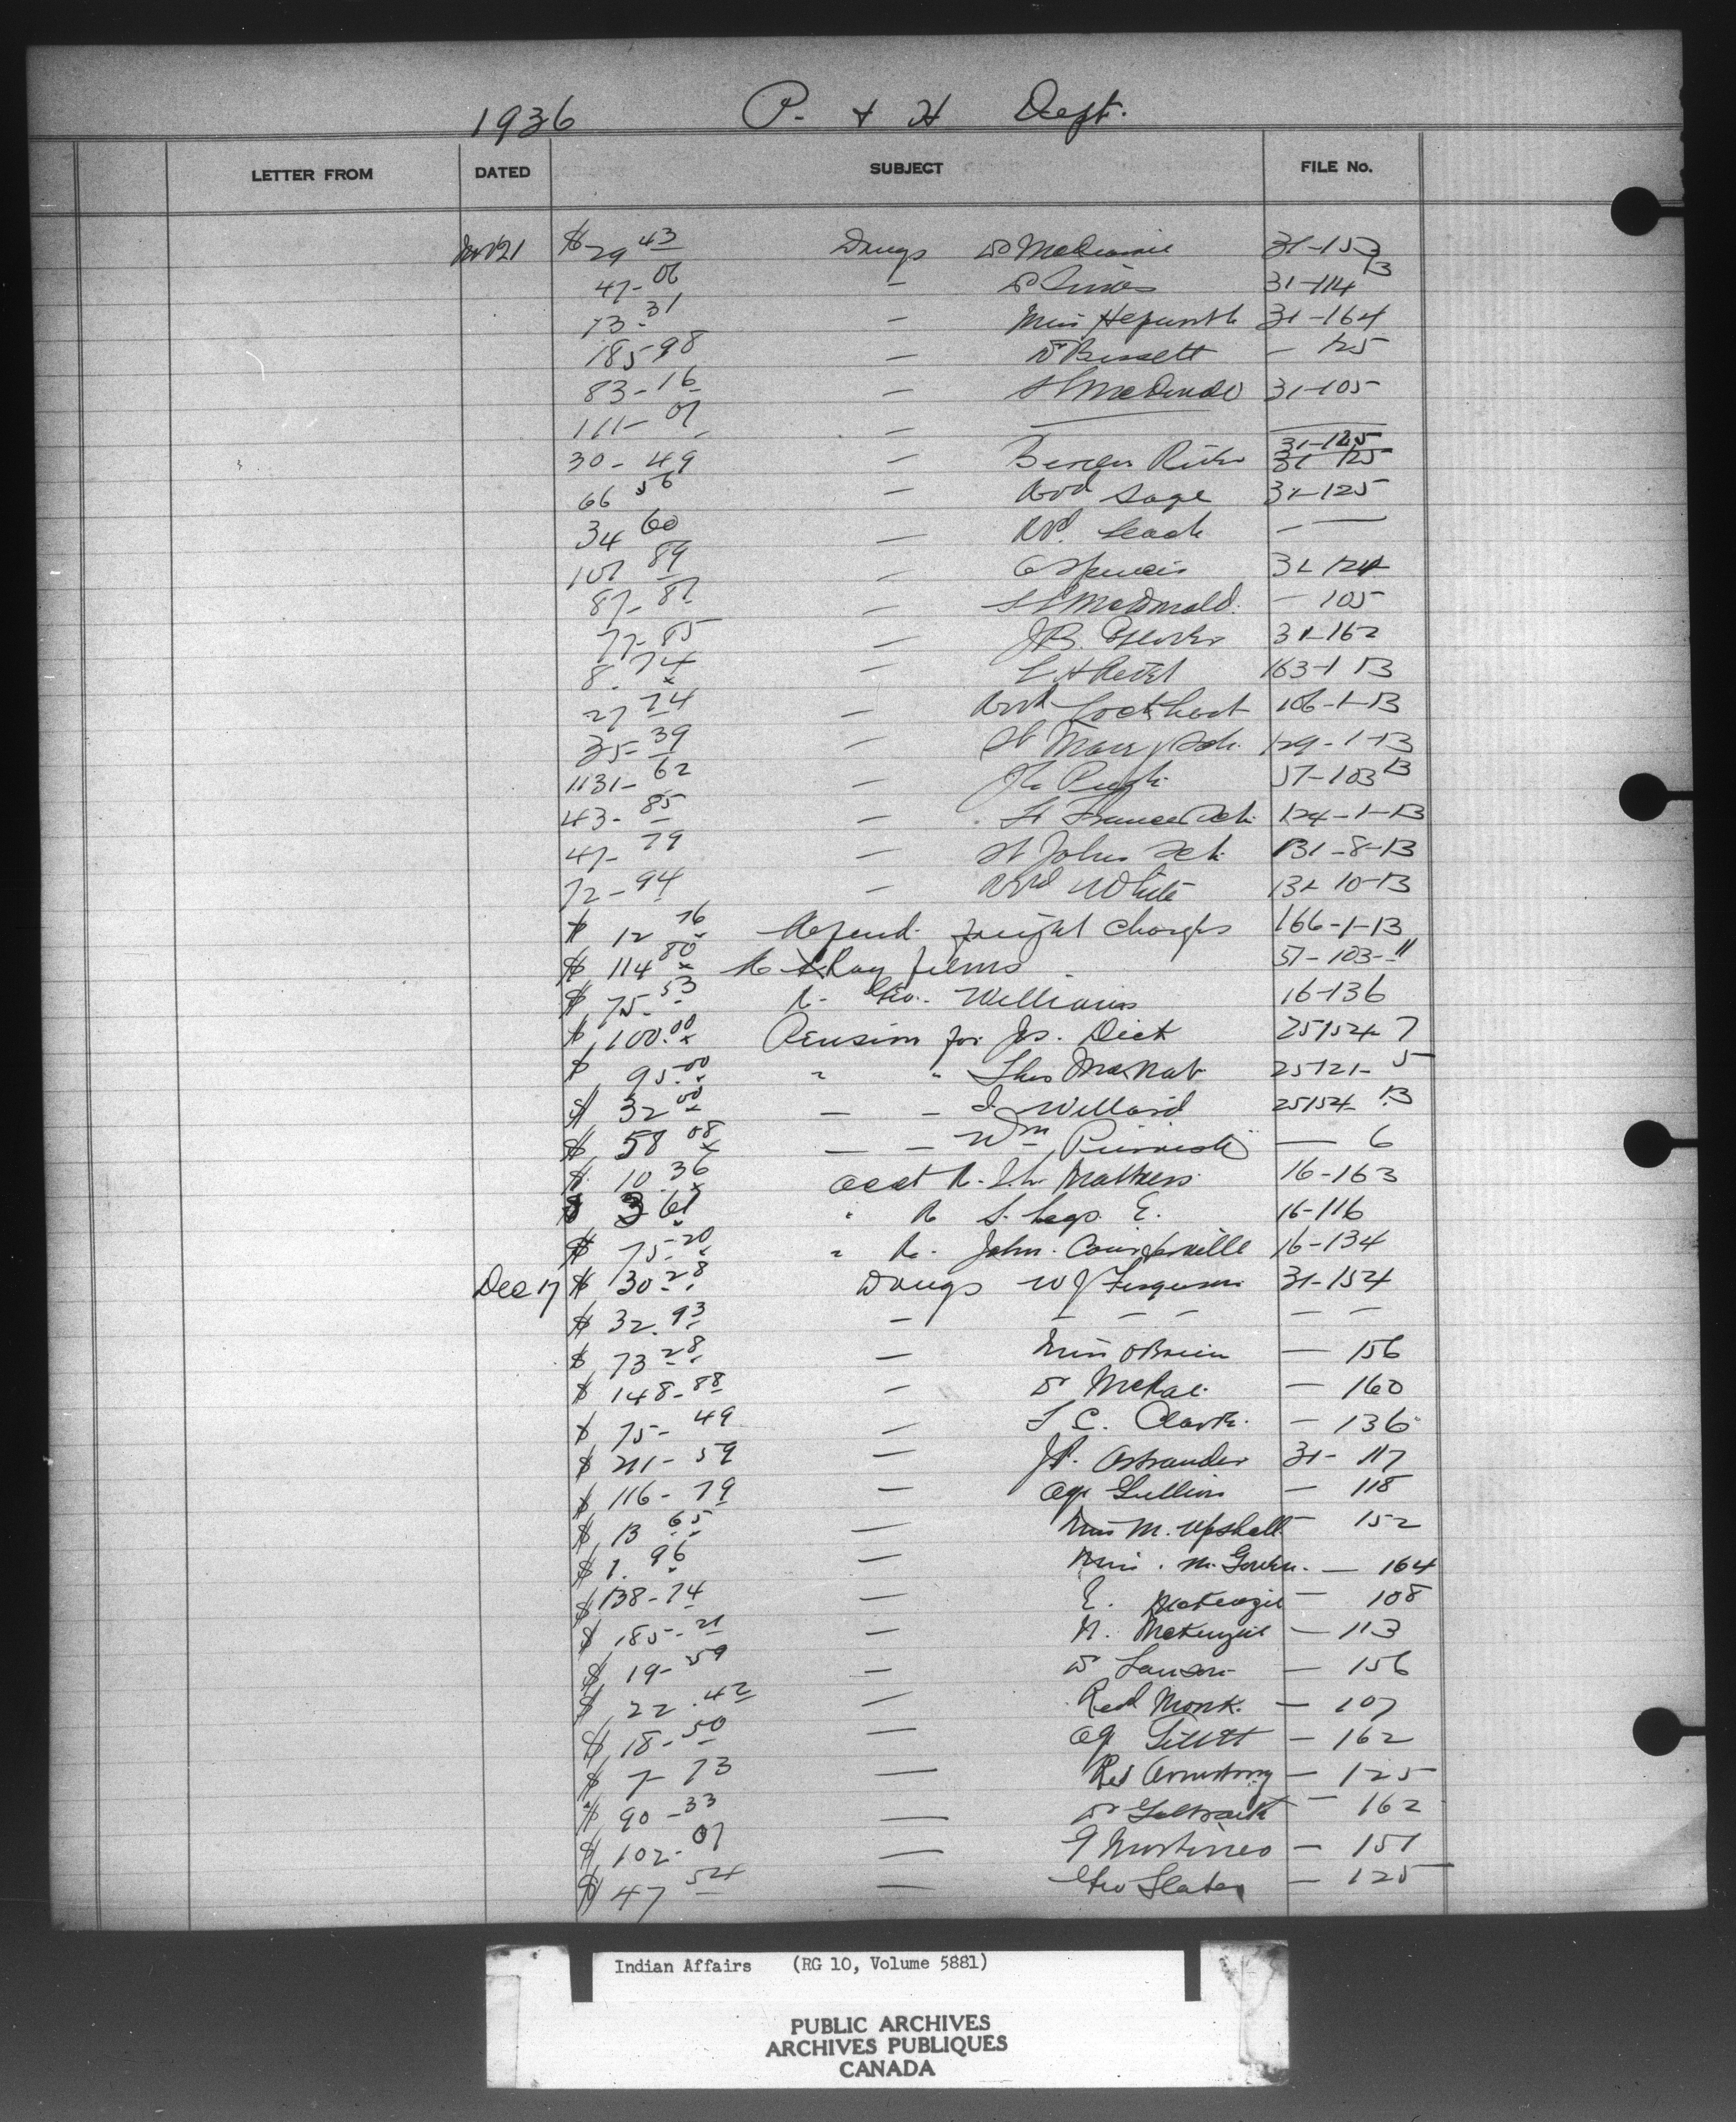 1936 P. & H Dept.
LETTER FROM DATED SUBJECT FILE No.
$ 29 43 Drugs Dr 31-153
47-06 — Dr 31-114 13
73-31 — Miss Hepworth 31-164
185-98 — Dr Bissett — 125
83-16 — 31-105
111-07 — —
31-125
30-49 — Berens River 31-125
66 56 — Sage 31-125
34 60 — Leach — —
107 89 — 31 124
87-87 — McDonald. — 105
77-85 — J.B. 31-162
8.74 — 163-1-13
27 74 — Lockhart 106-1-13
35-39 — St Marys Sch. 129-1-13
1131-62 — 57-103 13
43-85 — Ft Frances Sch. 124-1-13
47-79 — St Johns Sch. 131-8-13
72-94 — White 131-10-13
$ 12 76 Refund freight charges 166-1-13
$ 114 80 Re X Ray films 57-103-11
$ 75-53 R. Geo. Williams 16-136
$ 100.00 Pension for Js. Dick 25154-7
$ 95.00 " " Thos McNab 25121-5
$ 32 00 — — Willard 25154-13
$ 58 08 — — Wm — 6
$ 10.36 acct R. Mathers 16-163
$ 3 61 " R 16-116
$ 75-20 " R. John. Courtoreille 16-134
Dec 17 $ 30-28 Drugs W J Ferguson 31-154
$ 32.93 — — — — — —
$ 73 28 — Miss OBrien — 156
$ 148-88 — Dr McRae. — 160
$ 75-49 — C. Clark. — 136
$ 211-59 — Ostrander 31-117
$ 116-79 — Agt Gullion — 118
$ 13 65 — Miss M. Upshall — 152
$ 1.96 — Miss. M. — 164
$ 138-74 — E. McKenzie — 108
$ 185-21 — N. McKenzie — 113
$ 19-59 — Dr — 156
$ 22.42 — Red Monk. — 107
$ 18-50 — — 162
$ 7-73 — Rev Armstrong — 125
$ 90-33 — Dr Galbraith — 162
$ 102-07 — — 151
$ 47 54 — Geo Slater — 125
Indian Affairs (RG 10, Volume 5881)
PUBLIC ARCHIVES
ARCHIVES PUBLIQUES
CANADA